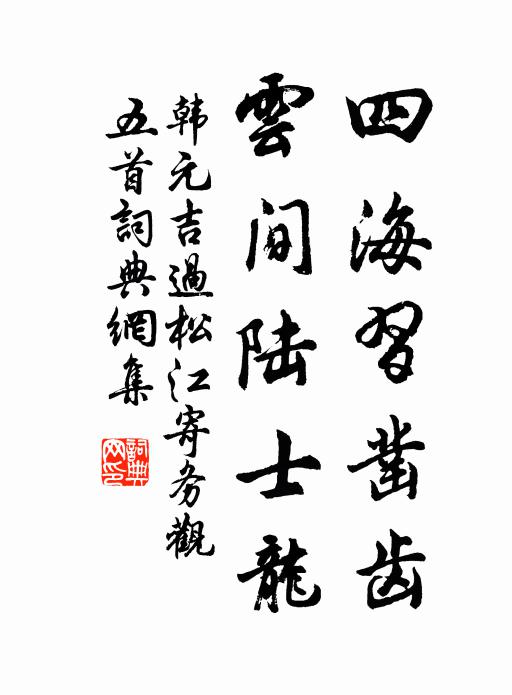 四海習凿齿
雲间陆士龍
韩元吉過松江寄务觀
五首詞典網集
詞典网印